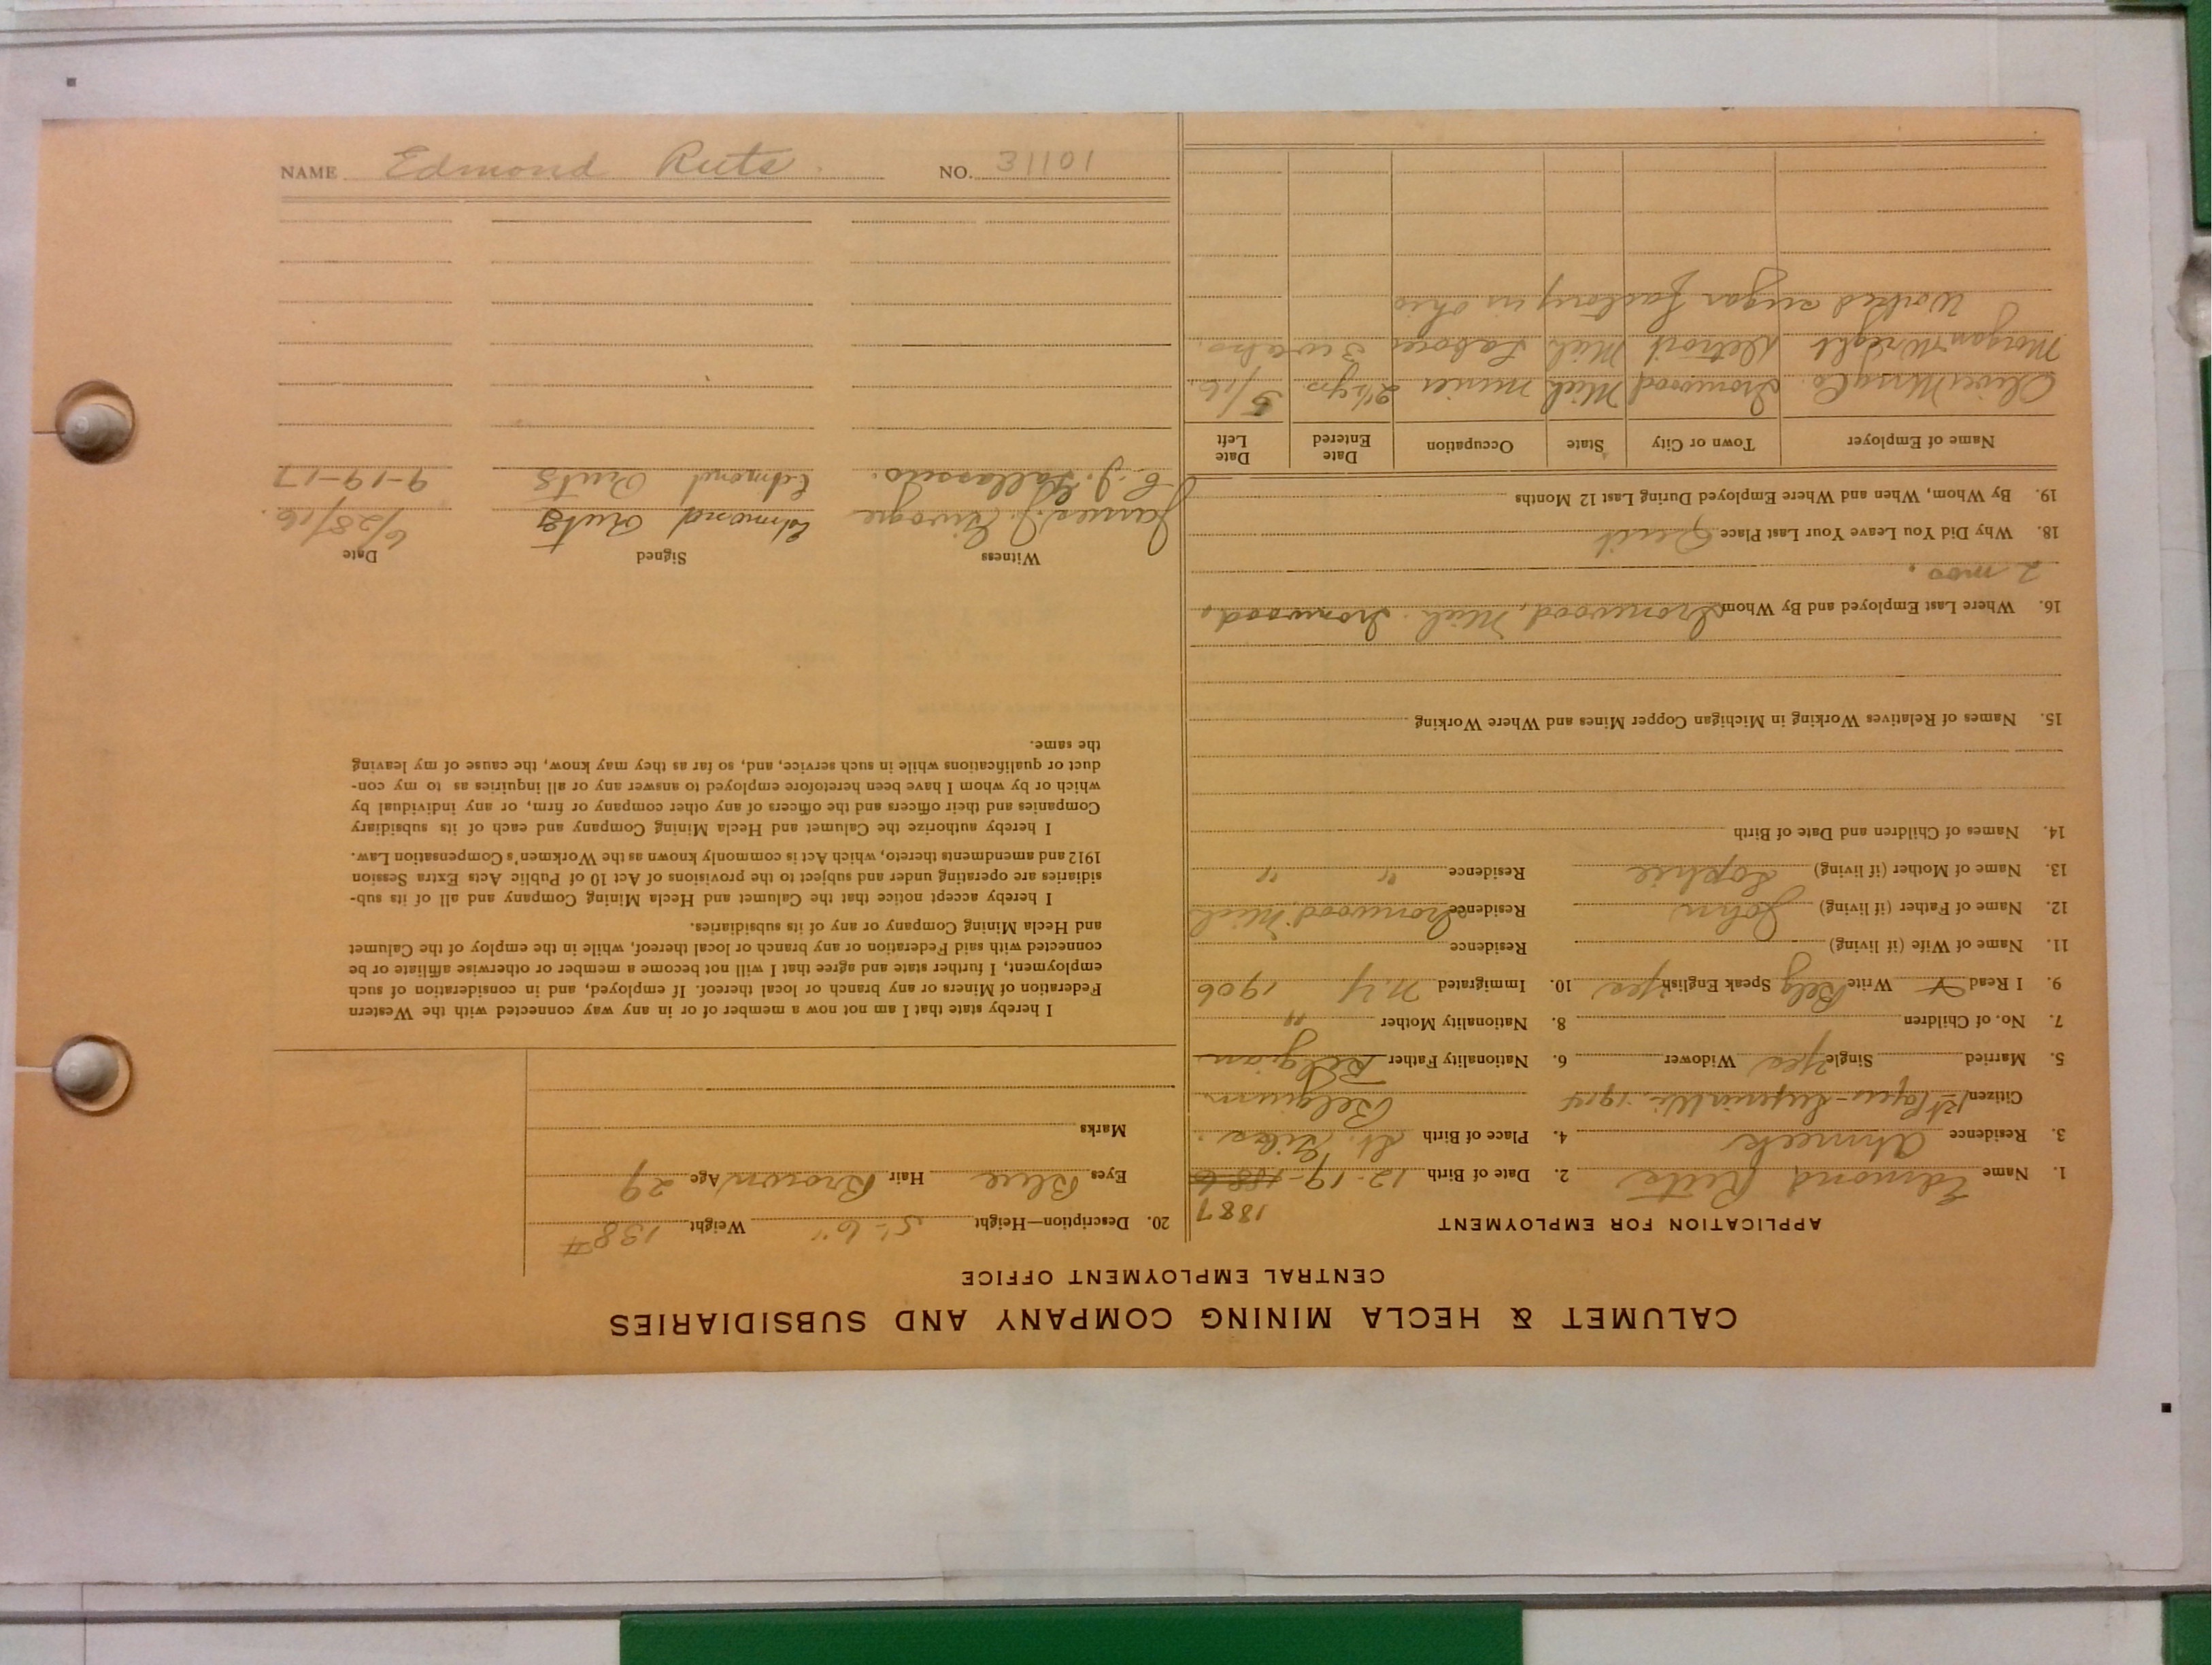 CALUMET & HECLA MINING COMPANY AND SUBSIDIARIES
CENTRAL EMPLOYMENT OFFICE
APPLICATION FOR EMPLOYMENT
1887
1. Name Edmond Ruts 2. Date of Birth 12-19-1886
3. Residence Ahmeek 4. Place of Birth St. Gilas
Citizen 1st Papers-Superior Wis. 1914 Belgium
5. Married Single Yes Widower 6. Nationality Father Belgian
7. No. of Children 8. Nationality Mother "
9. I Read Write Belg Speak English Yes 10. Immigrated N.Y. 1906
11. Name of Wife (if living) Residence
12. Name of Father (if living) John Residence Ironwood, Mich
13. Name of Mother (if living) Sophie Residence " "
14. Names of Children and Date of Birth
15. Names of Relatives Working in Michigan Copper Mines and Where Working
16. Where Last Employed and By Whom Ironwood, Mich. Ironwood,
2 mos.
18. Why Did You Leave Your Last Place Quit
19. By Whom, When and Where Employed During Last 12 Months
Name of Employer Town or City State Occupation Date Entered Date Left
Oliver Mining Co. Ironwood Mich miner 2½ yrs. 5/16.
Morgan Wright Detroit Mich Laborer 3 weeks.
Worked sugar factory in Ohio
20. Description—Height 5'-6" Weight 138#
Eyes Blue Hair Brown Age 29
Marks
I hereby state that I am not now a member of or in any way connected with the Western
Federation of Miners or any branch or local thereof. If employed, and in consideration of such
employment, I further state and agree that I will not become a member or otherwise affiliate or be
connected with said Federation or any branch or local thereof, while in the employ of the Calumet
and Hecla Mining Company or any of its subsidiaries.
I hereby accept notice that the Calumet and Hecla Mining Company and all of its sub-
sidiaries are operating under and subject to the provisions of Act 10 of Public Acts Extra Session
1912 and amendments thereto, which Act is commonly known as the Workmen's Compensation Law.
I hereby authorize the Calumet and Hecla Mining Company and each of its subsidiary
Companies and their officers and the officers of any other company or firm, or any individual by
which or by whom I have been heretofore employed to answer any or all inquiries as to my con-
duct or qualifications while in such service, and, so far as they may know, the cause of my leaving
the same.
Witness Signed Date
James J. Edmond Ruts 6/28/16.
E. J. Edmond Ruts 9-19-17
NAME Edmond Ruts. NO. 31101